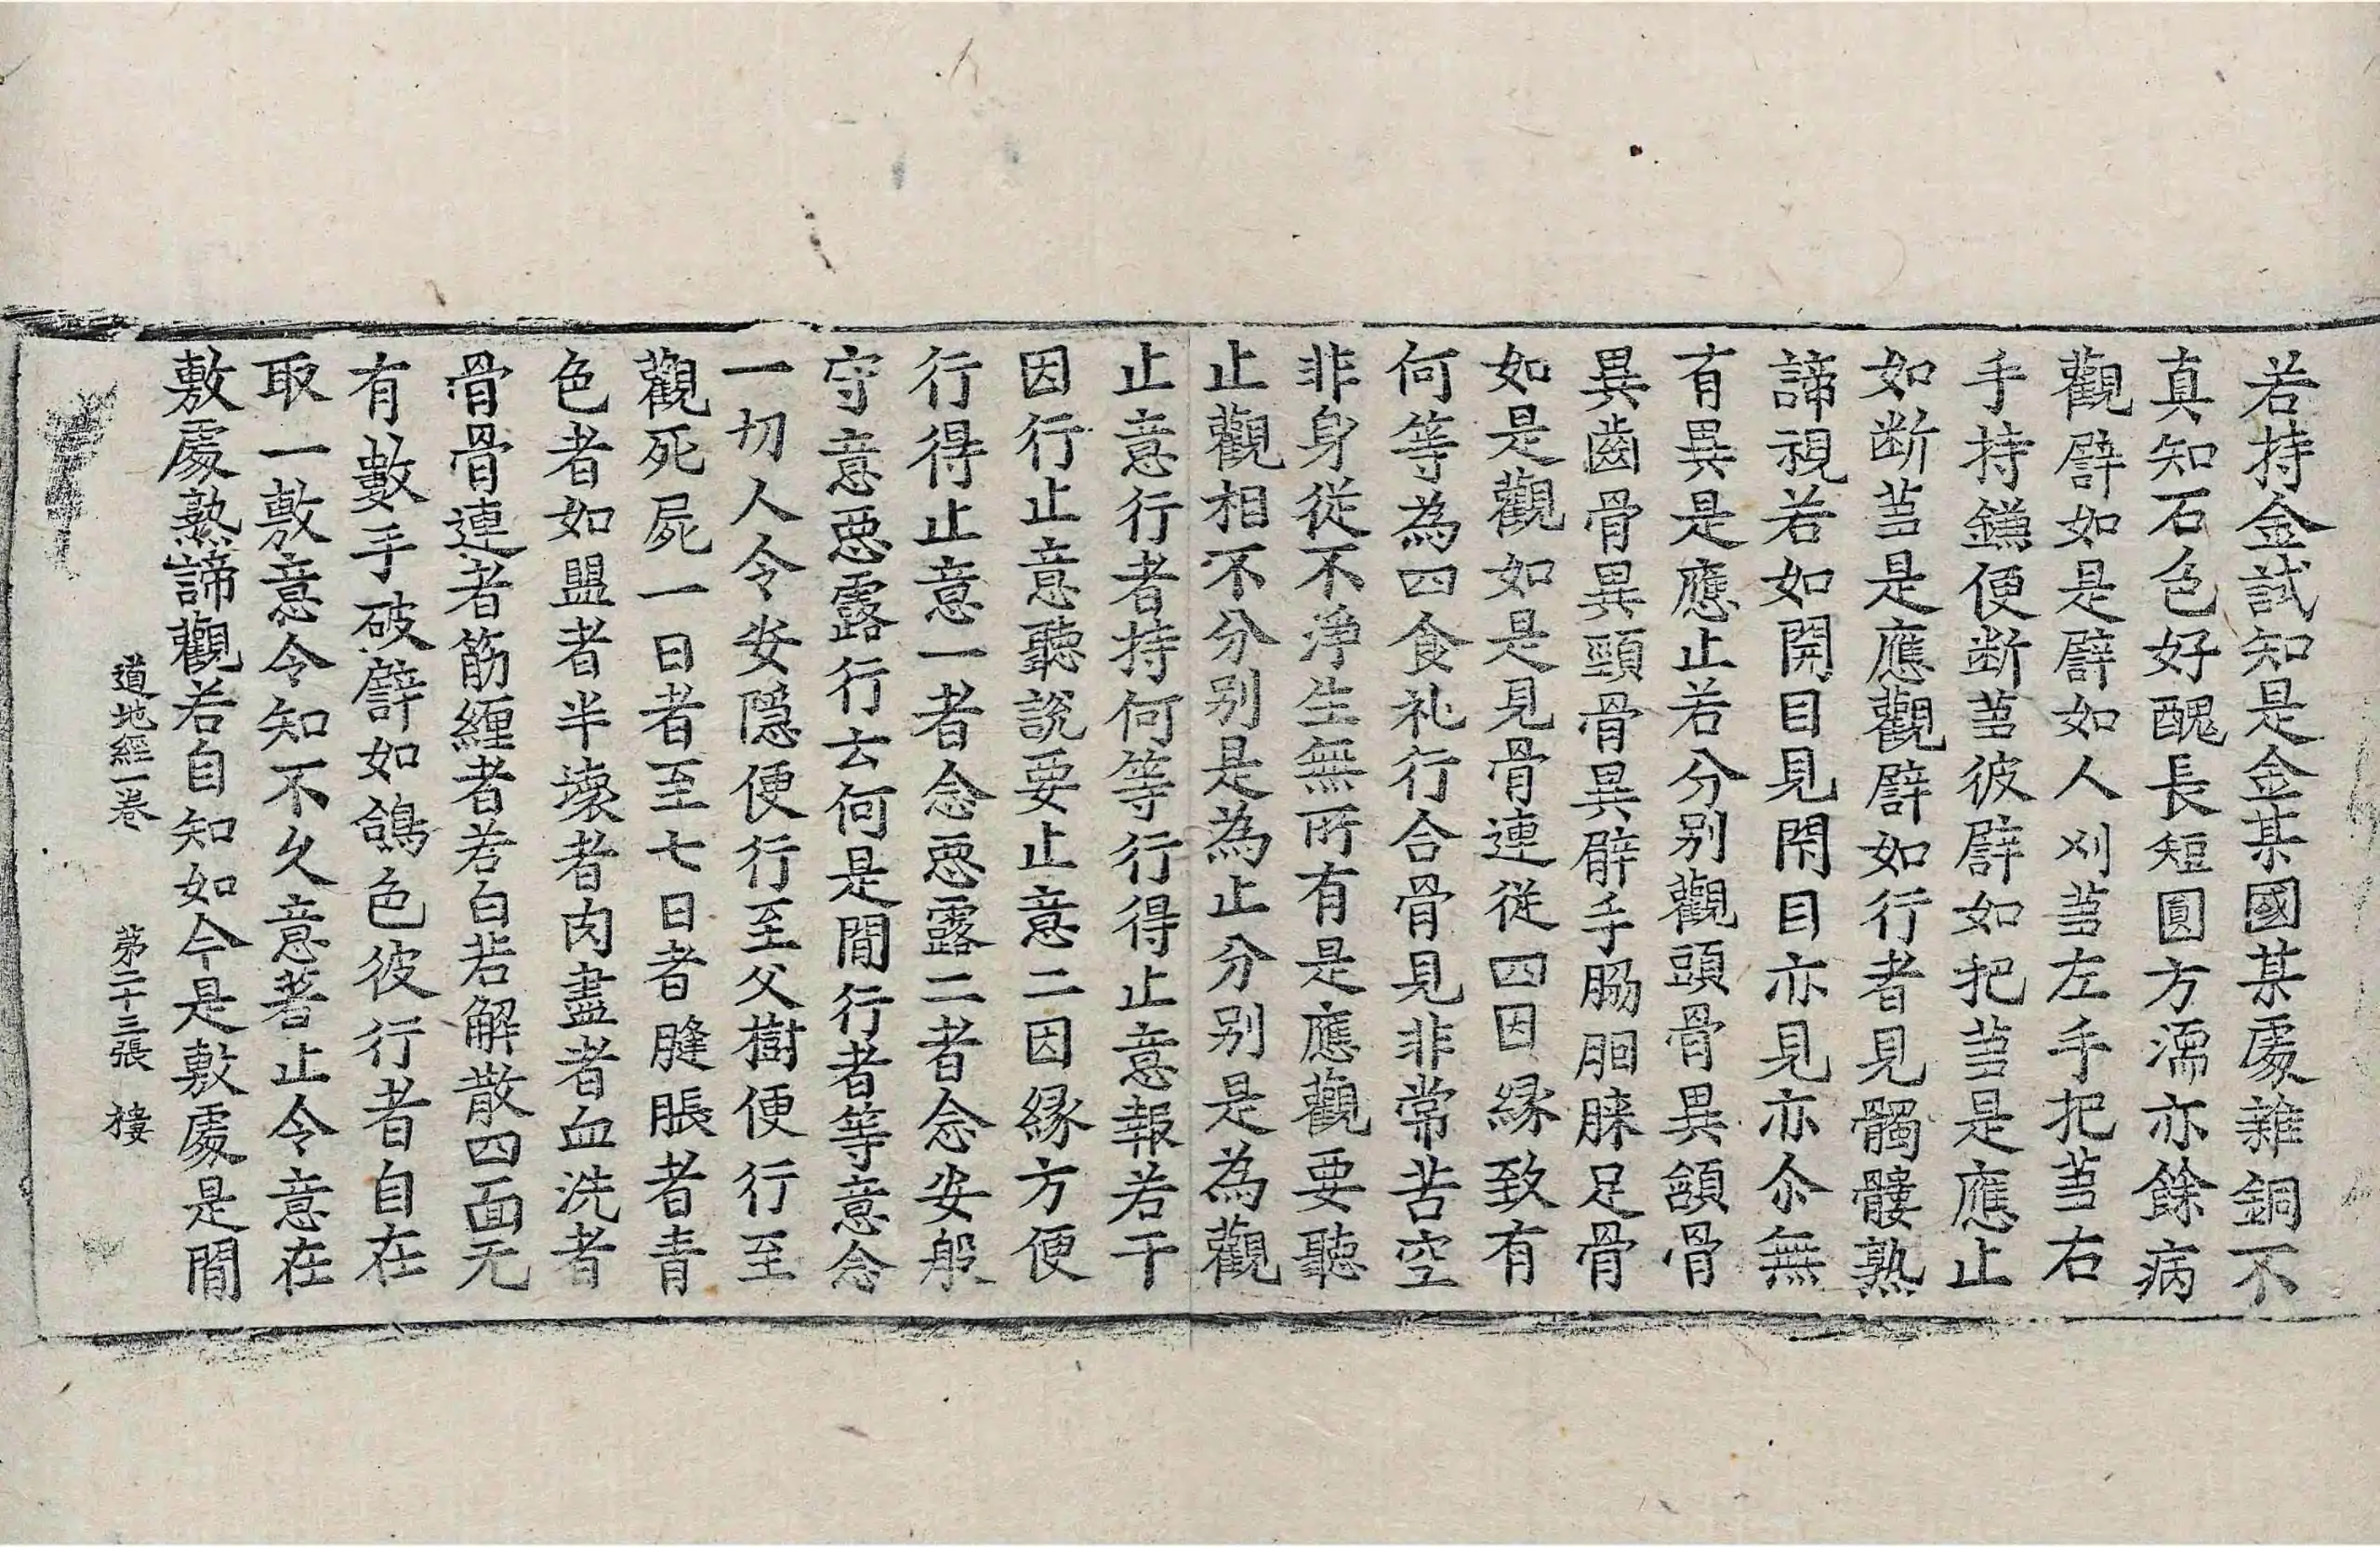 若持金試知是金某國某處雜銅不
真知石色好醜長短圓方濡亦餘病
觀譬如是譬如人刈䓤左手把䓤右
手持鎌便断䓤彼譬如把䓤是應止
如断䓤是應觀譬如行者見髑髏熟
諦視若如開目見閇目亦見亦尒無
有異是應止若分別觀頭骨異頷骨
異齒骨異頸骨異臂手脇胭脨足骨
如是觀如是見骨連從四因縁致有
何等為四食礼行合骨見非常苦空
非身從不淨生無所有是應觀要聽
止觀相不分別是為止分別是為觀
止意行者持何等行得止意報若干
因行止意聽說要止意二因縁方便
行得止意一者念惡露二者念安般
守意惡露行云何是間行者等意念
一切人令安隱便行至父樹便行至
觀死屍一日者至七日者膖脹者青
色者如盟者半壞者肉盡者血洗者
骨骨連者筋纏者若白若解散四面无
有數手破譬如鴿色彼行者自在
取一敷意令知不久意著止令意在
敷處熟諦觀若自知如今是敷處是間
道地經一卷　第二十三張　樓